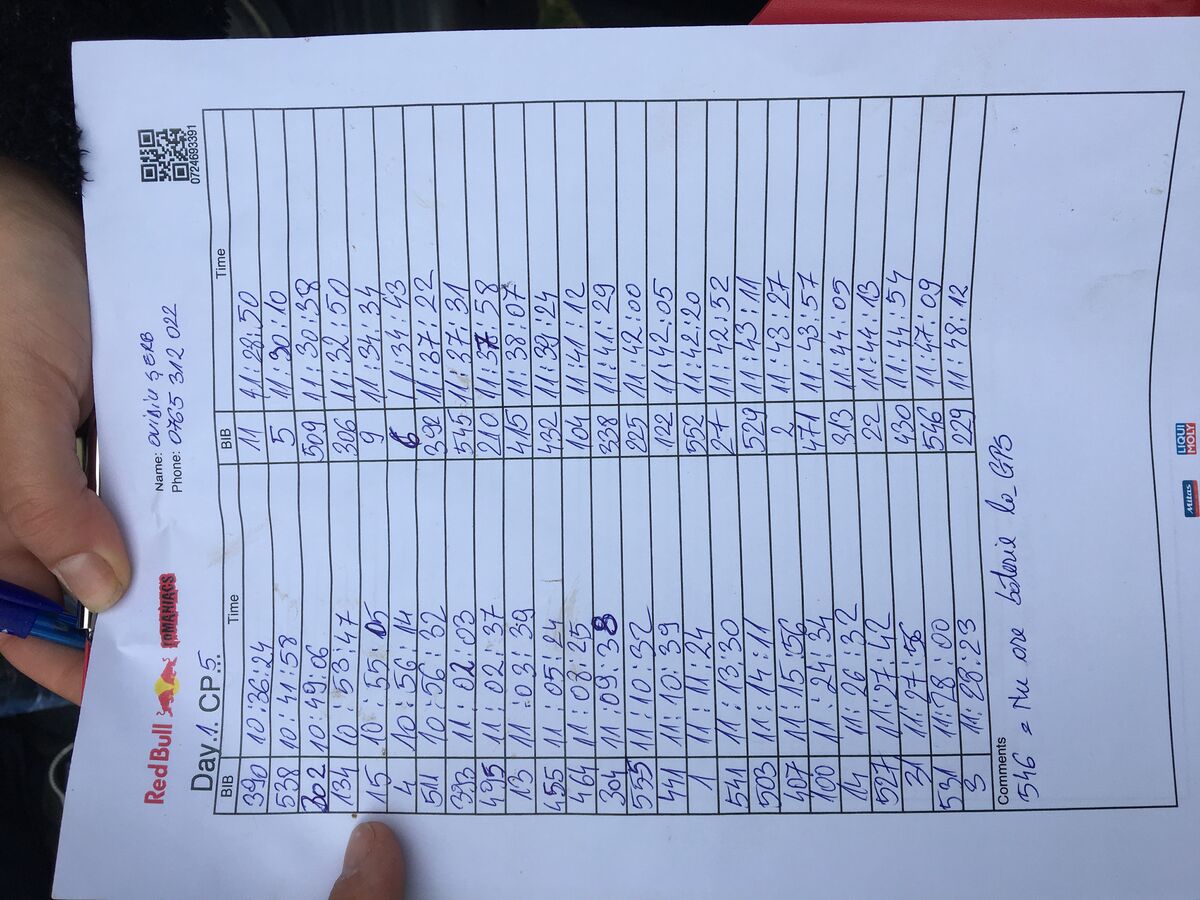 Red Bull ROMANIACS
Name: OVIDIU ȘERB
Phone: 0765 312 022
0724693391
Day..1. CP.5..
BIB Time BIB Time
390 10:36:24 11 11:28:50
538 10:41:58 5 11:30:10
202 10:49:06 509 11:30:38
134 10:53:47 306 11:32:50
15 10:55:05 9 11:34:34
4 10:56:14 6 11:34:43
511 10:56:32 392 11:37:22
393 11:02:03 545 11:37:31
495 11:02:37 210 11:37:58
13 11:03:39 415 11:38:07
455 11:05:24 432 11:39:24
464 11:08:25 104 11:41:12
304 11:09:38 338 11:41:29
555 11:10:32 225 11:42:00
441 11:10:39 122 11:42:05
1 11:11:24 552 11:42:20
541 11:13:30 27 11:42:32
503 11:14:11 529 11:43:11
407 11:15:56 2 11:43:27
100 11:24:34 471 11:43:57
14 11:26:32 313 11:44:05
527 11:27:42 22 11:44:13
31 11:27:56 430 11:44:54
531 11:28:00 546 11:47:09
3 11:28:23 229 11:48:12
Comments
546 = Nu are baterie la GPS
Mitas LIQUI MOLY